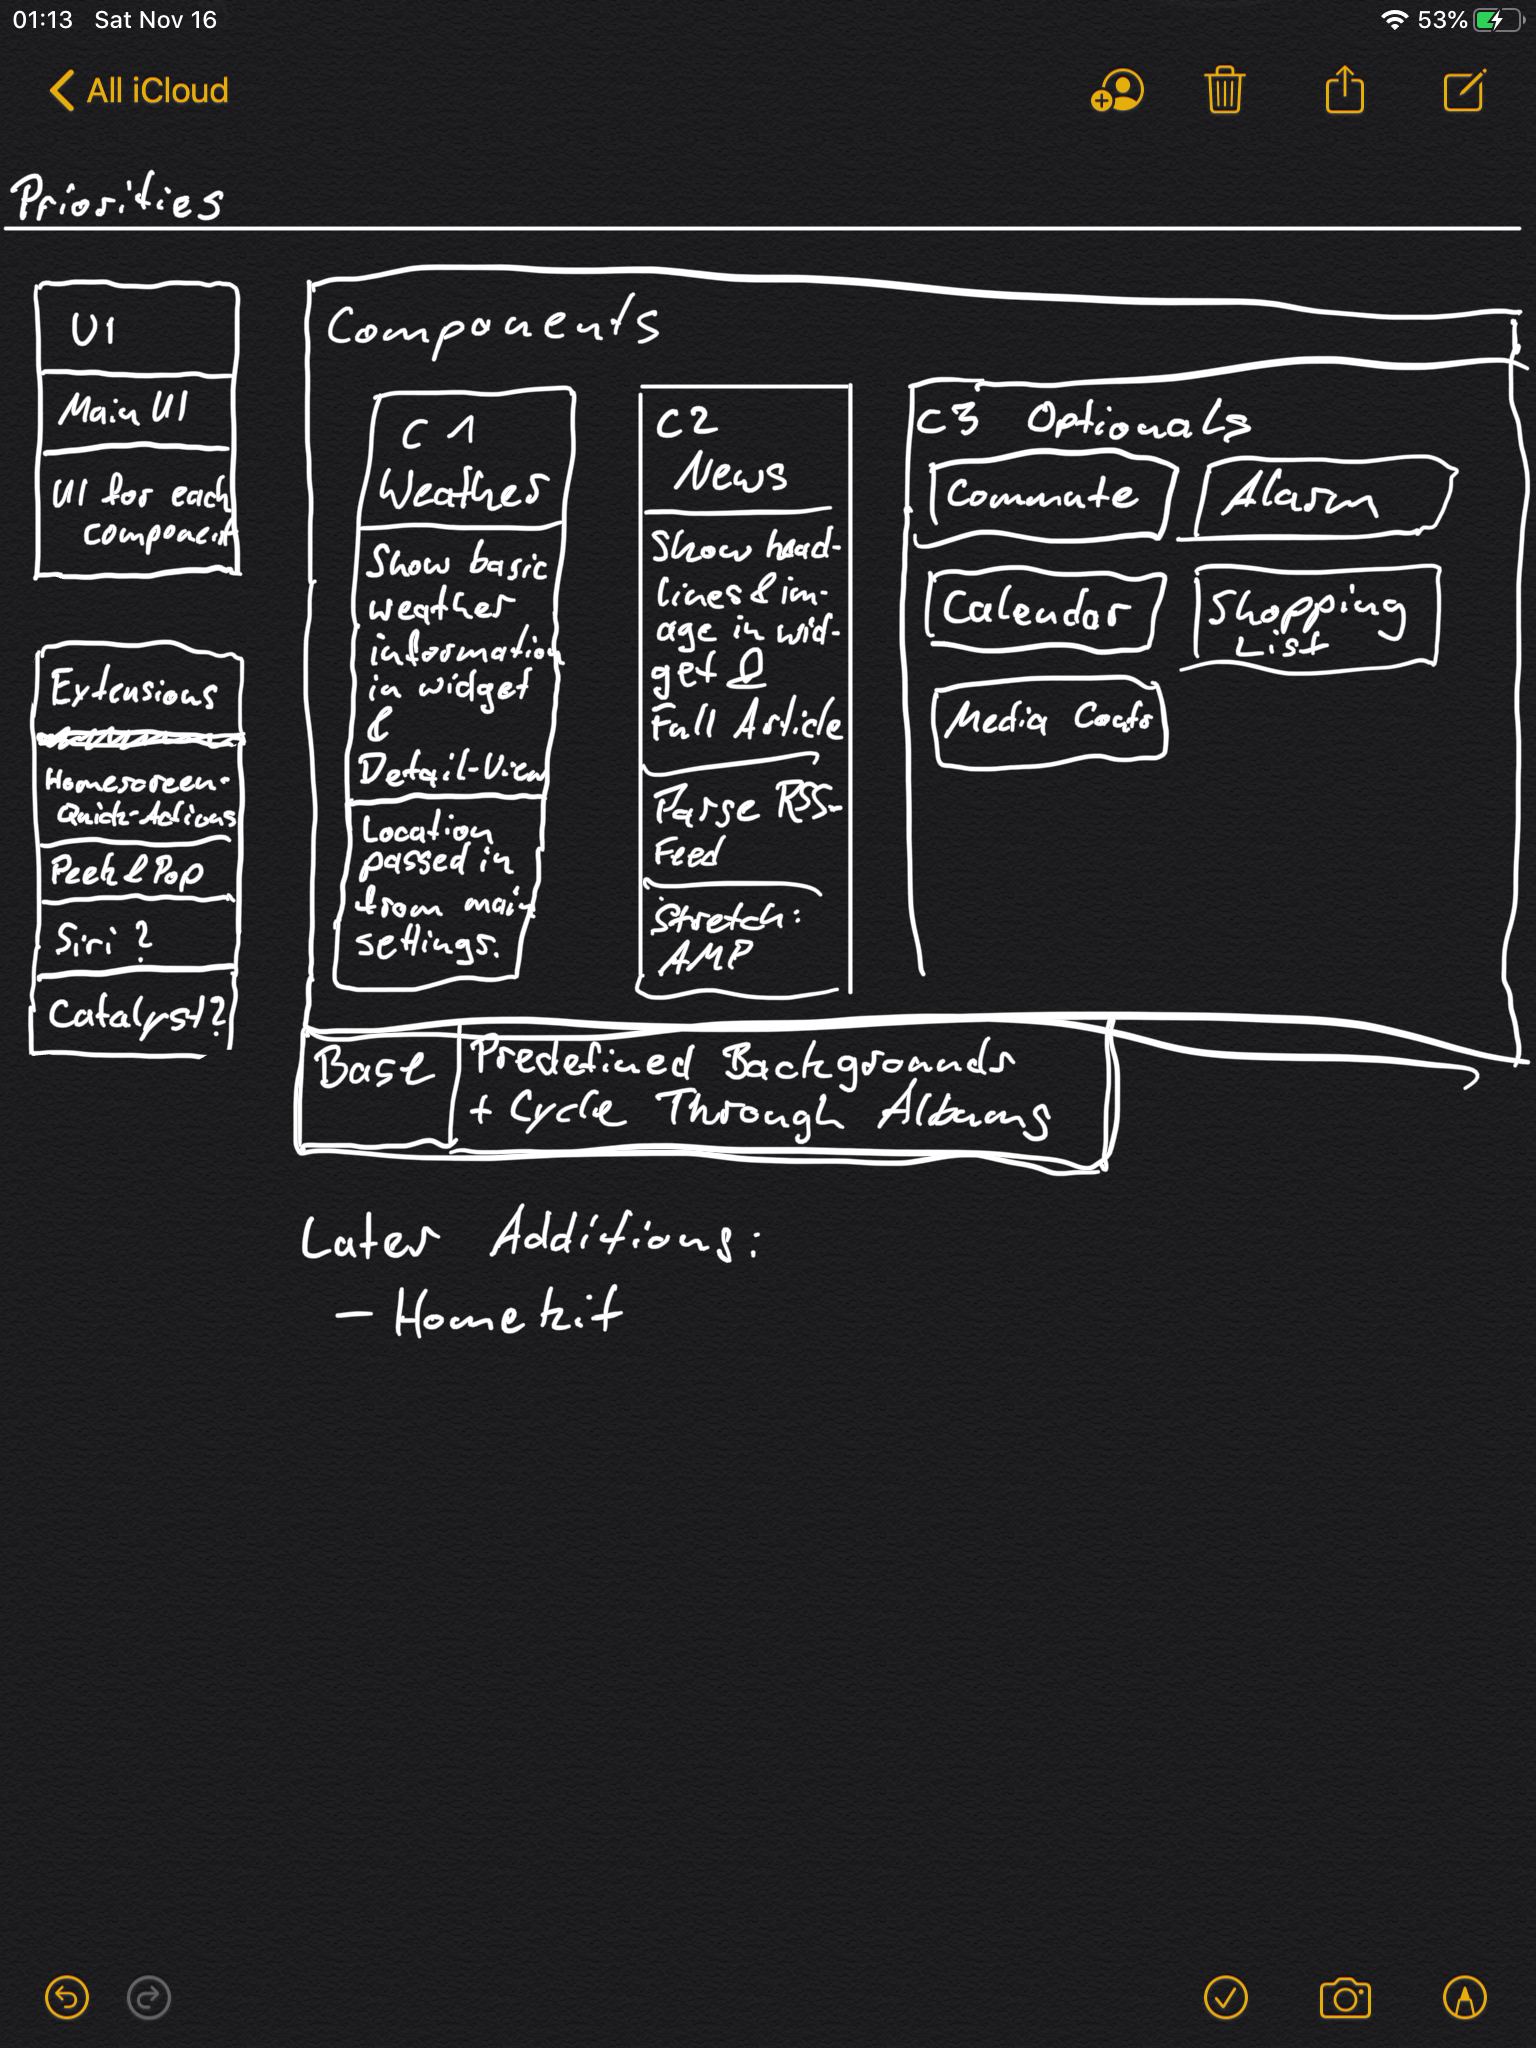 01:13 Sat Nov 16
53%
All iCloud
Priorities
UI
Main UI
UI for each
component
Extensions
Homescreen-
Quick-Actions
Peek & Pop
Siri ?
Catalyst?
Components
C 1
Weather
Show basic
weather
information
in widget
&
Detail-View
Location
passed in
from main
settings.
C2
News
Show head-
lines & im-
age in wid-
get &
Full Article
Parse RSS-
Feed
Stretch:
AMP
C3 Optionals
Commute
Alarm
Calendar
Shopping
List
Media
Base
Predefined Backgrounds
+ Cycle Through Albums
Later Additions:
- Homekit